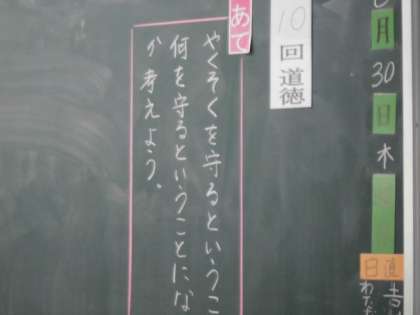 月
30
日
木
日直
10
回道徳
めあて
やくそくを守るというこ
何を守るということにな
か考えよう。